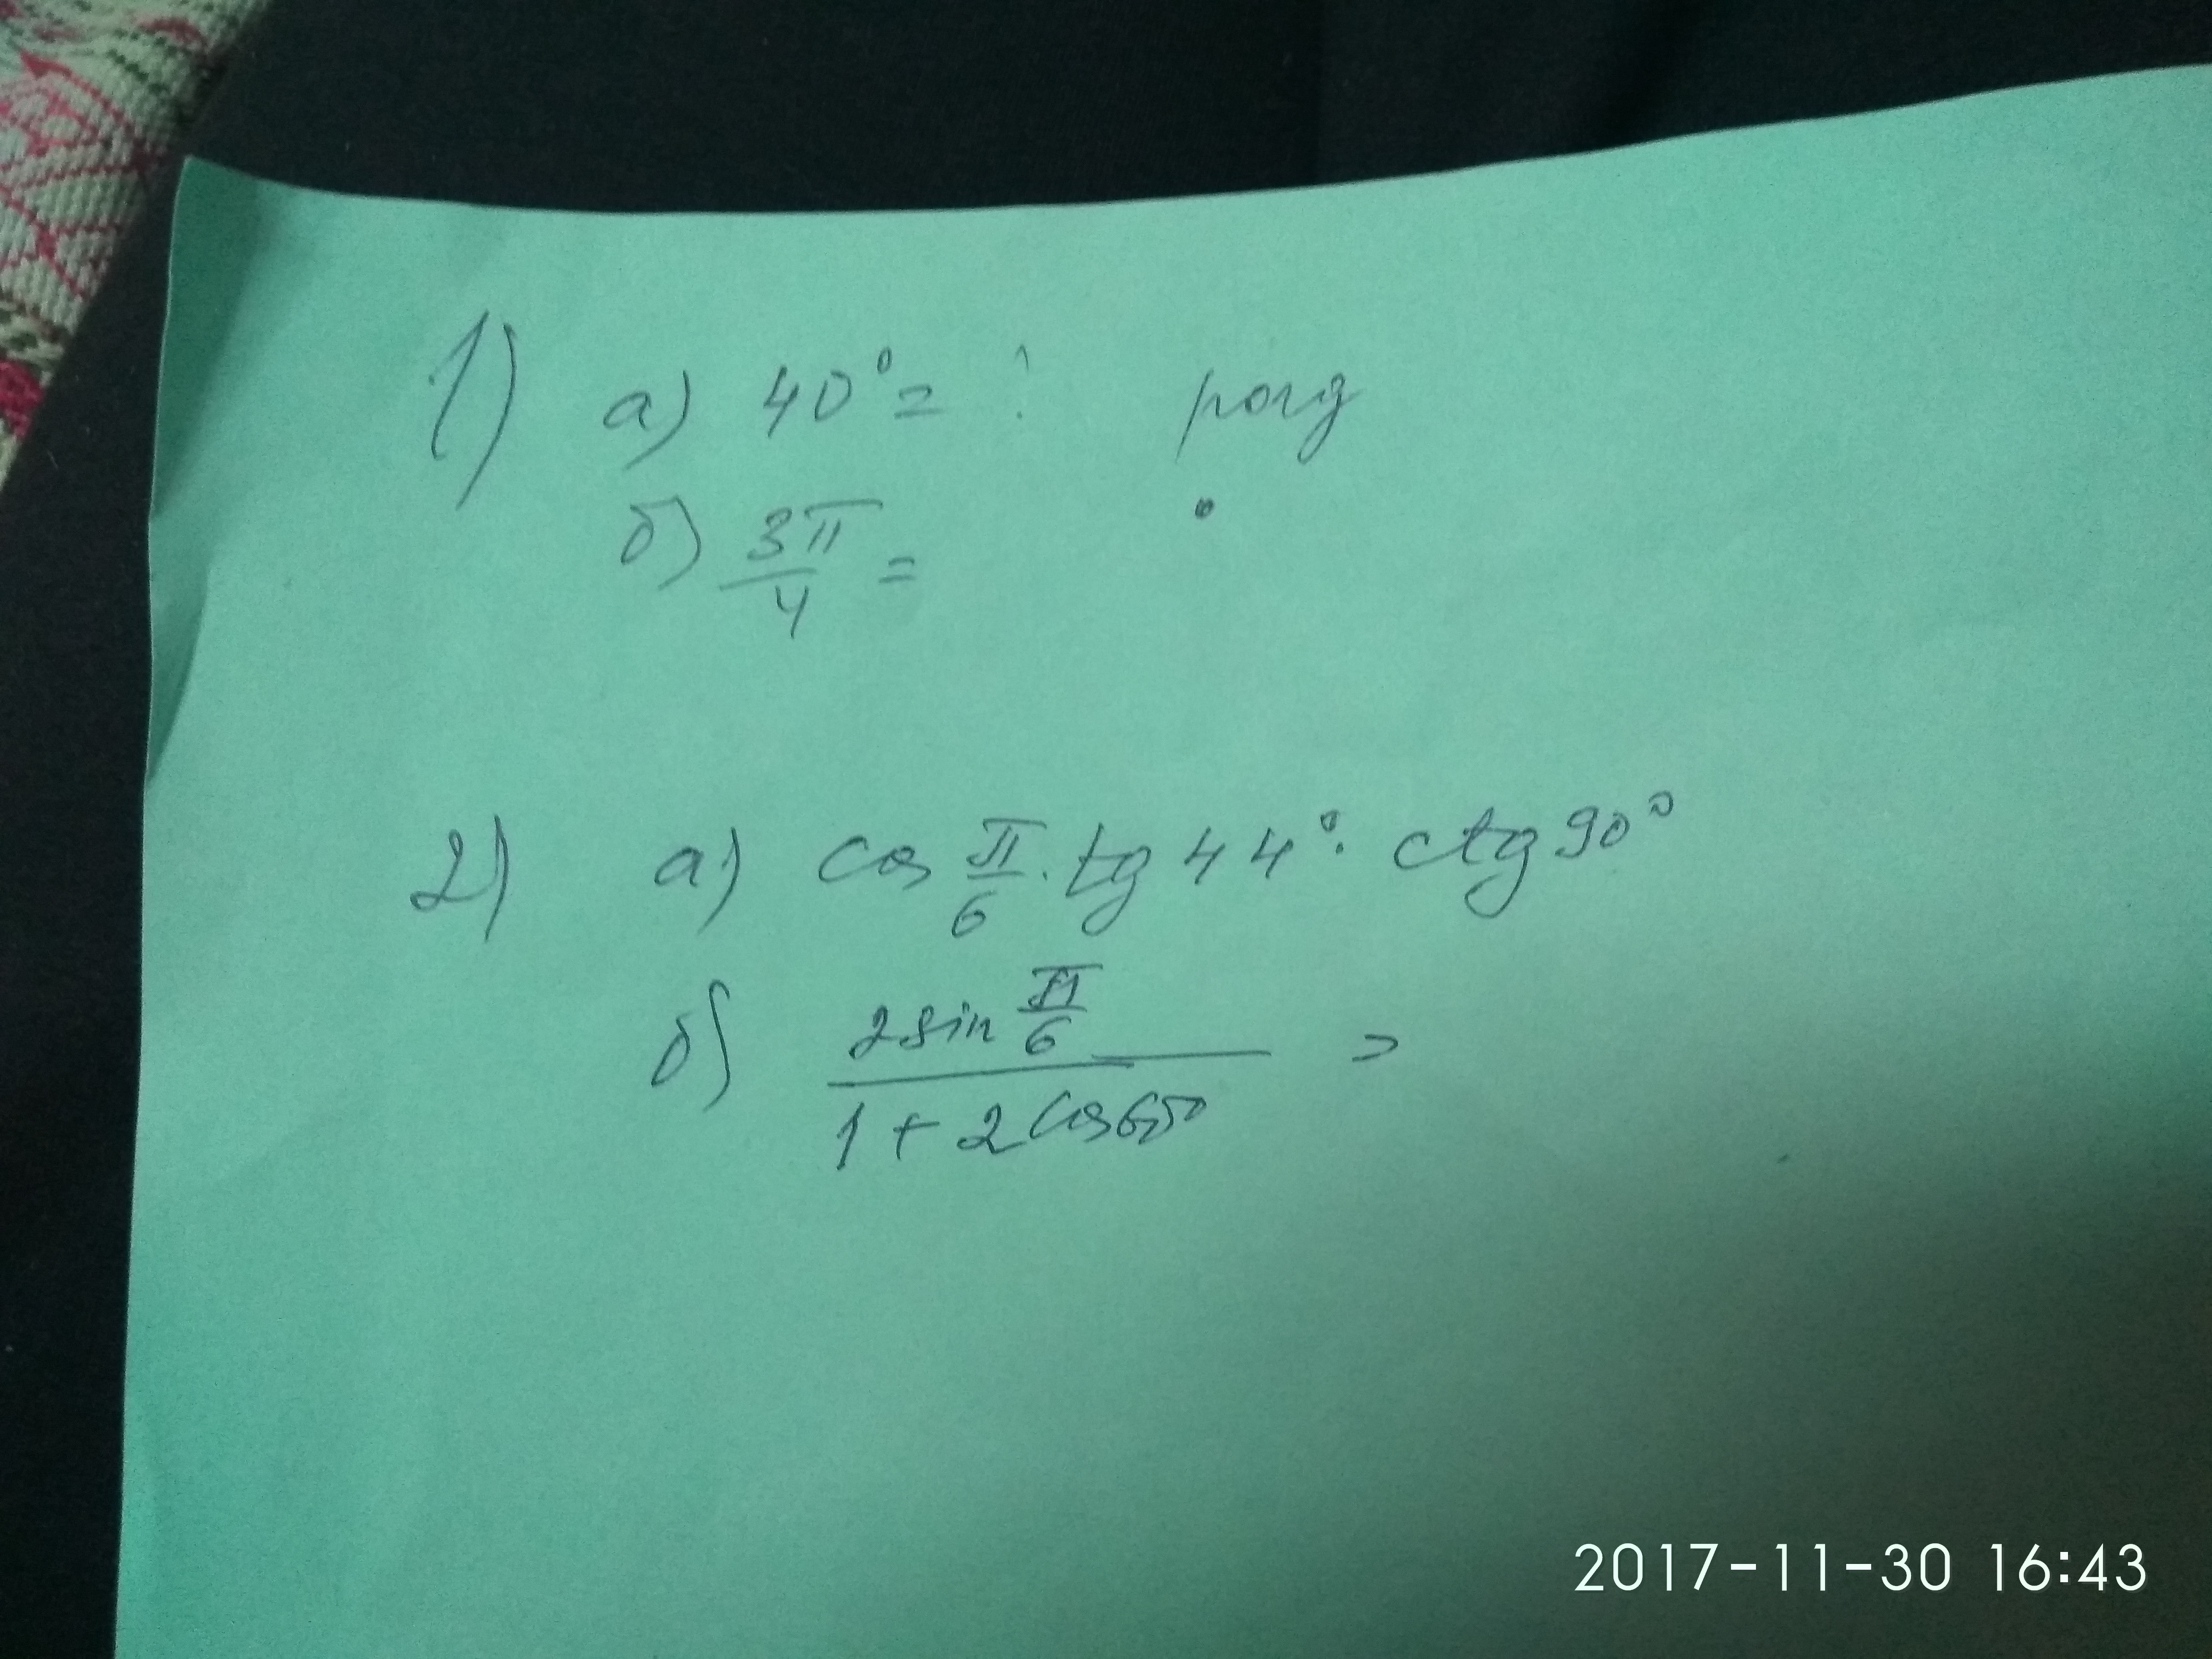 1) а) 40° = ? рад
б) 3π/4 = °
2) а) cos π/6 · tg 44° · ctg 90°
б) 2 sin π/6 =
1 + 2 cos
2017-11-30 16:43